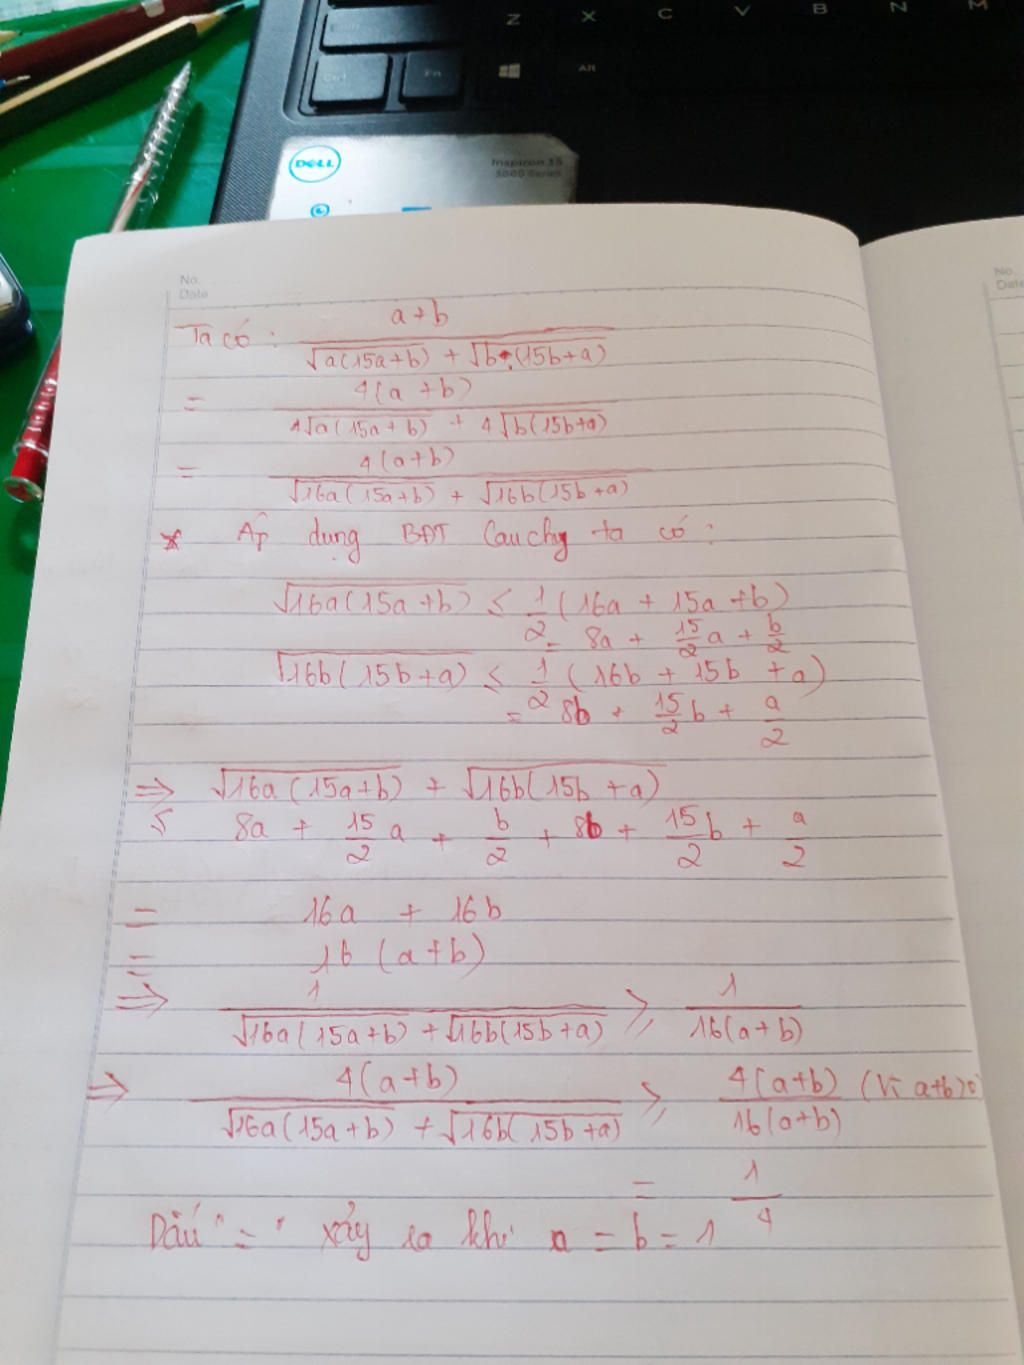 Z X C V B N M
Ctrl Fn Alt
DELL
Inspiron 15
3000 Series
No.
Date
No.
Date
Ta có : (a+b)/(√a(15a+b) + √b.(15b+a))
= 4(a+b)/(4√a(15a+b) + 4√b(15b+a))
= 4(a+b)/(√16a(15a+b) + √16b(15b+a))
* Áp dụng BĐT Cauchy ta có :
√16a(15a+b) ≤ 1/2 (16a + 15a + b)
= 8a + 15/2 a + b/2
√16b(15b+a) ≤ 1/2 (16b + 15b + a)
= 8b + 15/2 b + a/2
⇒ √16a(15a+b) + √16b(15b+a)
≤ 8a + 15/2 a + b/2 + 8b + 15/2 b + a/2
= 16a + 16b
= 16(a+b)
⇒ 1/(√16a(15a+b) + √16b(15b+a)) ≥ 1/(16(a+b))
⇒ 4(a+b)/(√16a(15a+b) + √16b(15b+a)) ≥ 4(a+b)/(16(a+b)) (Vì a+b>0)
= 1/4
Dấu "=" xảy ra khi a = b = 1